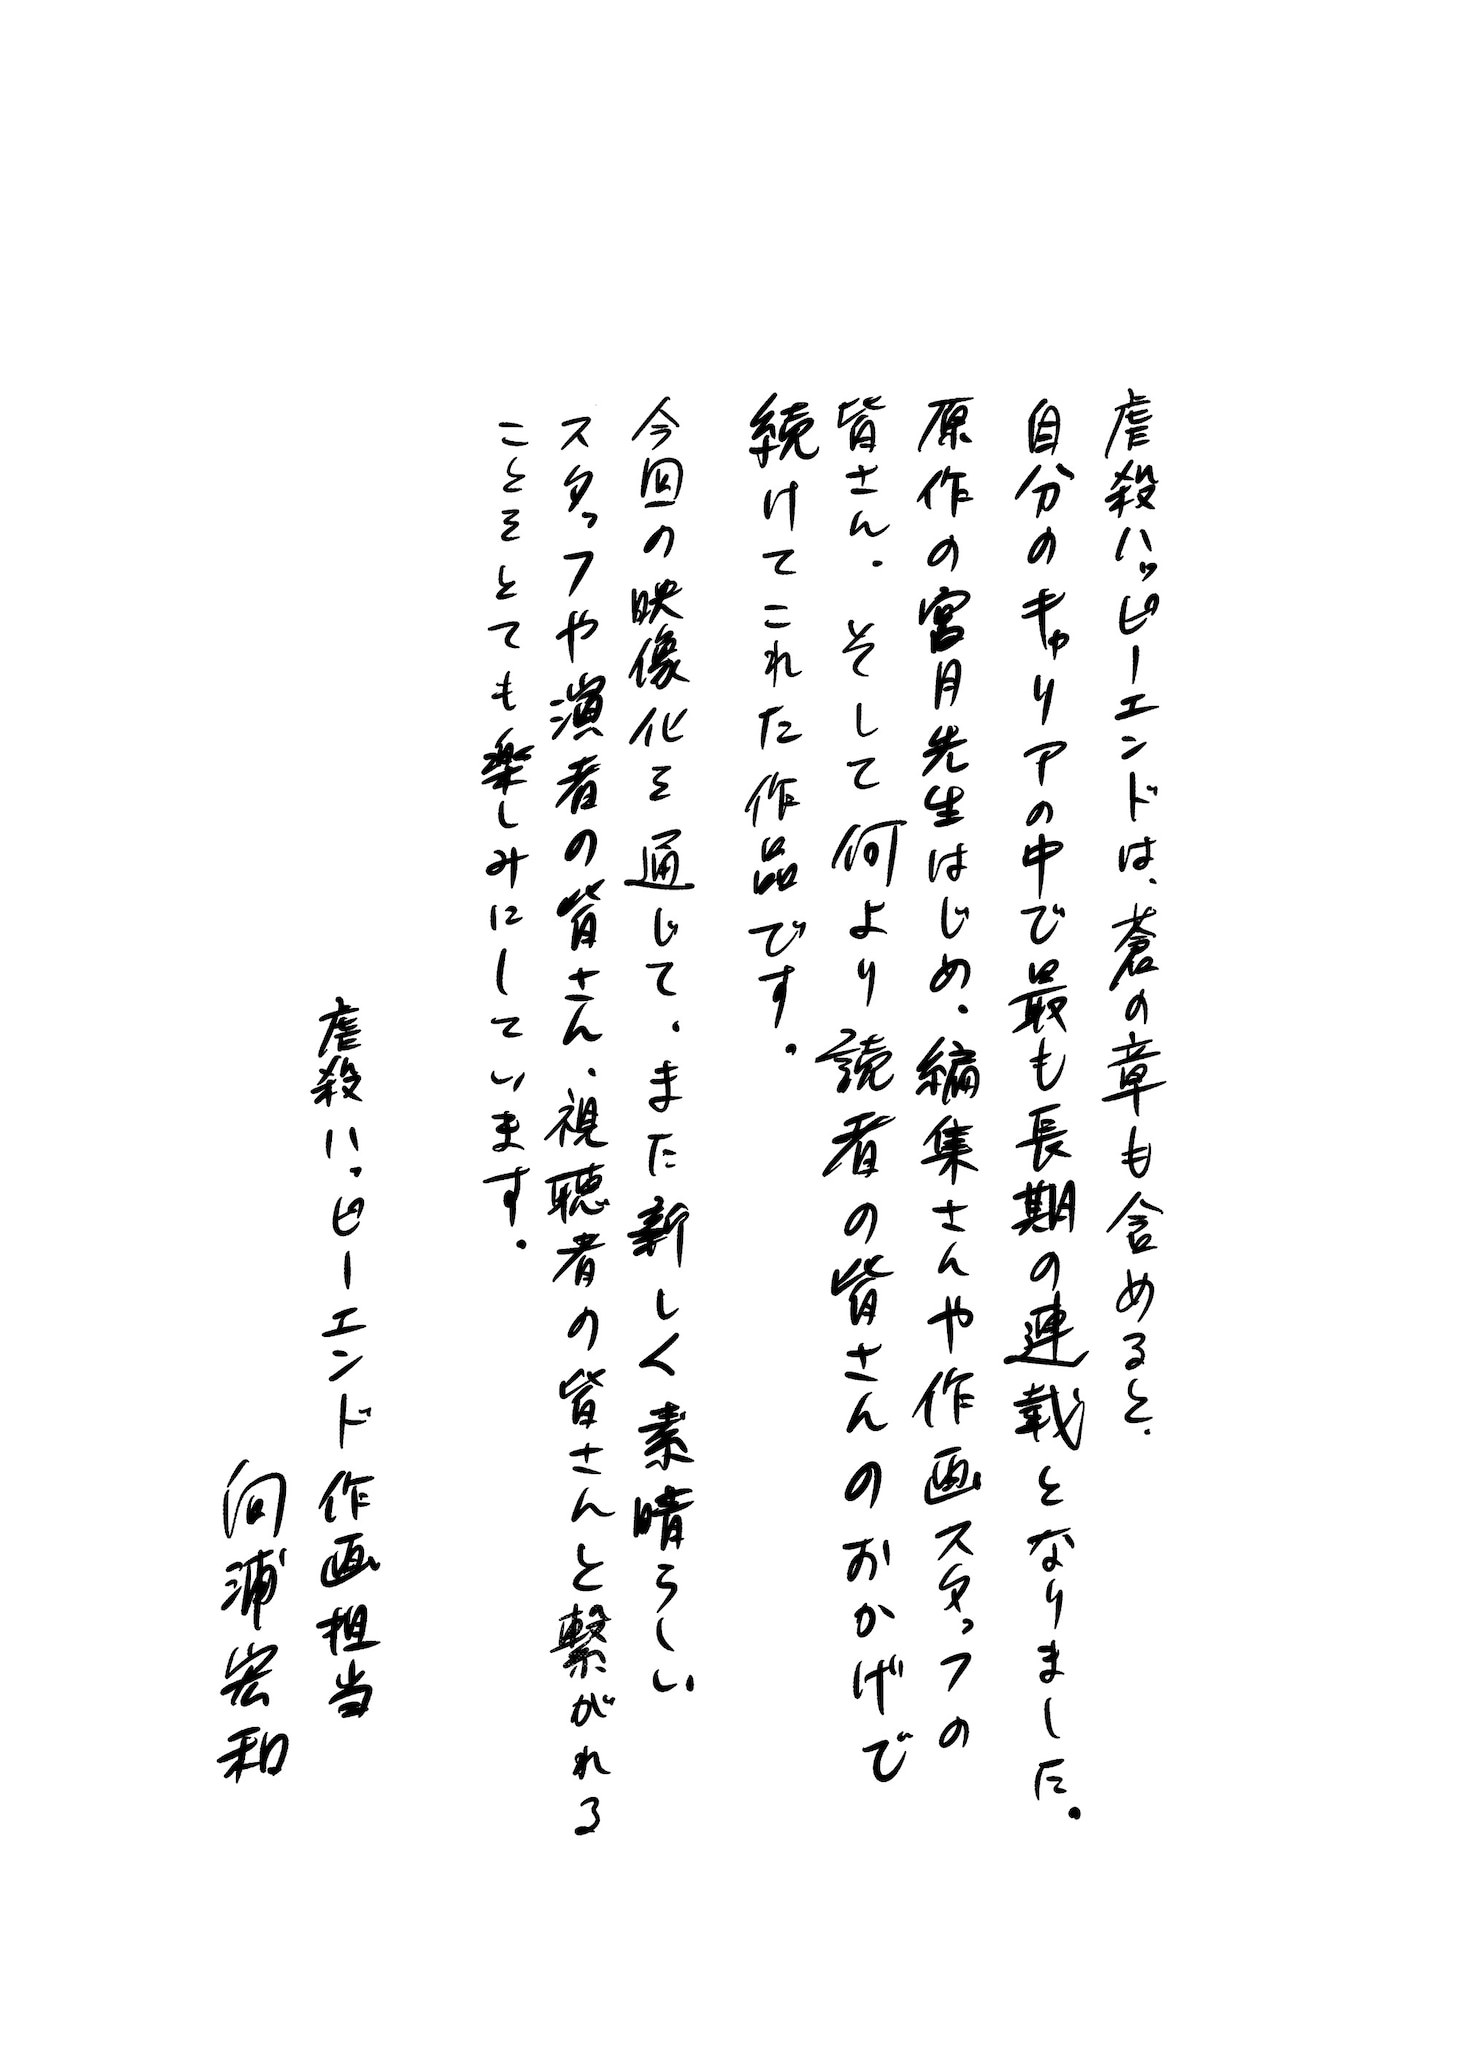 虐殺ハッピーエンドは、蒼の章も含めると、
自分のキャリアの中で最も長期の連載となりました。
原作の宮月先生はじめ、編集さんや作画スタッフの
皆さん、そして何より読者の皆さんのおかげで
続けてこれた作品です。
今回の映像化を通じて、また新しく素晴らしい
スタッフや演者の皆さん、視聴者の皆さんと繋がれる
ことをとても楽しみにしています。
虐殺ハッピーエンド作画担当
向浦宏和